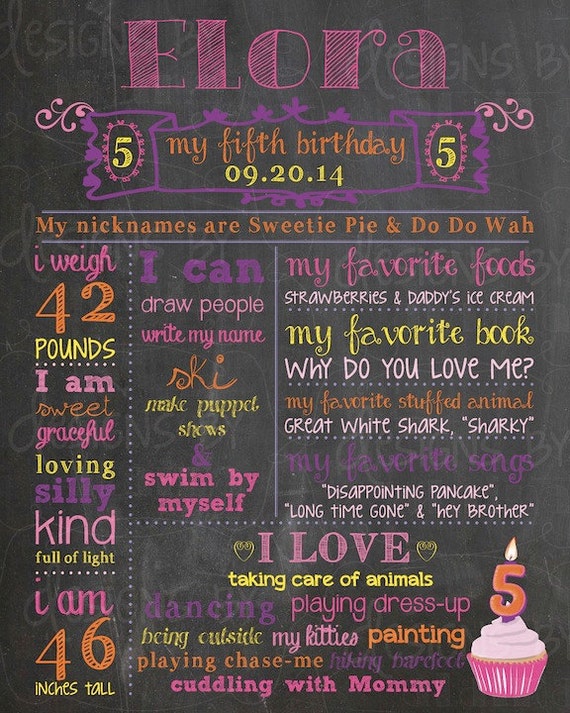 Elora
5 my fifth birthday 5
09.20.14
My nicknames are Sweetie Pie & Do Do Wah
i weigh
42
POUNDS
I am
sweet
graceful
loving
silly
kind
full of light
i am
46
inches tall
I can
draw people
write my name
ski
make puppet
shows
&
swim by
myself
my favorite foods
Strawberries & Daddy's Ice Cream
my favorite book
Why Do You Love Me?
my favorite stuffed animal
Great White Shark, "Sharky"
my favorite songs
"Disappointing Pancake",
"Long Time Gone" & "Hey Brother"
I LOVE
taking care of animals
dancing playing dress-up
being outside my kitties painting
playing chase-me hiking barefoot
cuddling with Mommy
5